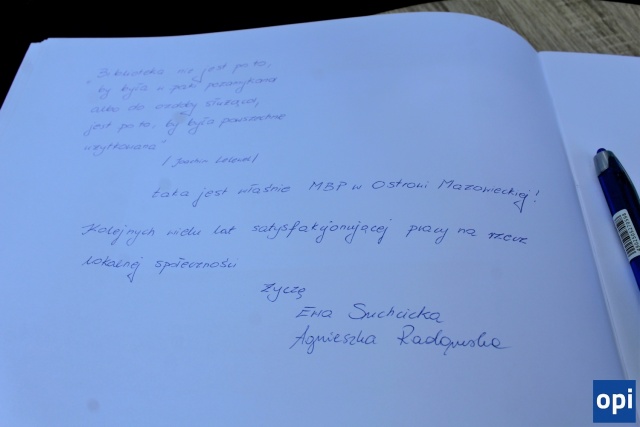 "Biblioteka nie jest po to,
by była w paki pozamykana
albo do ozdoby służąca,
jest po to, by była powszechnie
użytkowana"
/Joachim Lelewel/
taka jest właśnie MBP w Ostrowi Mazowieckiej!
Kolejnych wielu lat satysfakcjonującej pracy na rzecz
lokalnej społeczności
życzę
Ewa Suchcicka
Agnieszka
opi